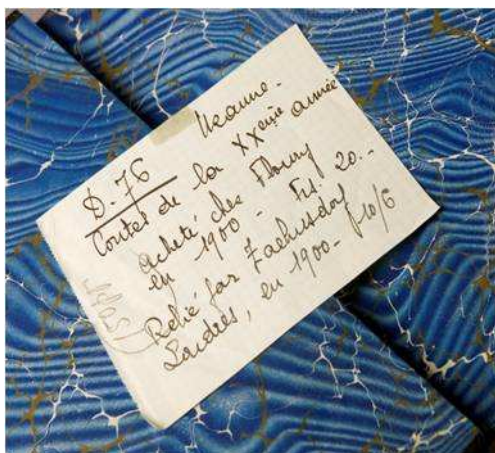 D. 76 Uzanne.
Contes de la XXème année
acheté chez Floury
en 1900 - Frs. 20.-
Relié par Zaehnsdorf
Londres, en 1900 - 10/6